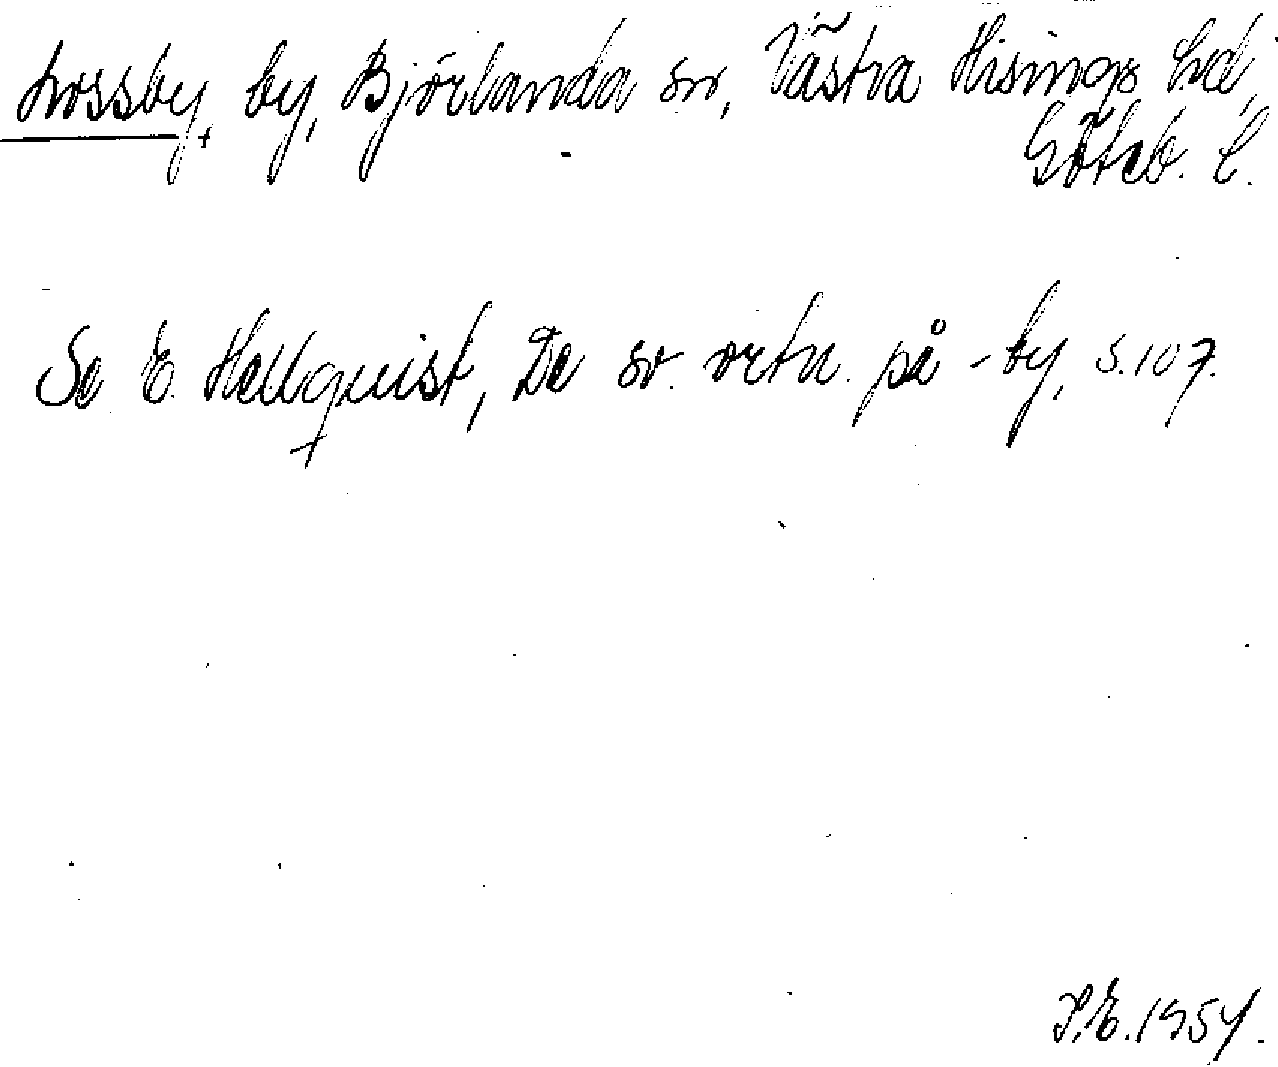 Lossby, by, Björlanda sn, Västra Hisings hd,
Göteb. l.
Se E. Hellquist, De sv. ortn. på -by, s. 107.
P.E. 1954.